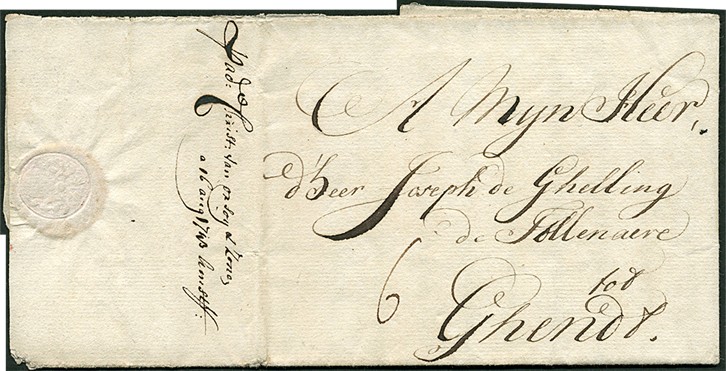 A Mijn Heer,
d'heer Joseph de Ghelling
de Tollenaere
6
tot
Ghendt.
Vad:
a 16 aug 1743